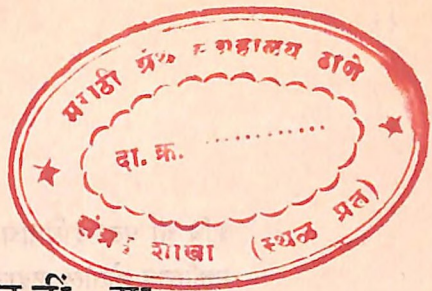 मराठी ग्रंथ संग्रहालय ठाणे
दा. क्र. .............
संग्रह शाखा (स्थळ प्रत)